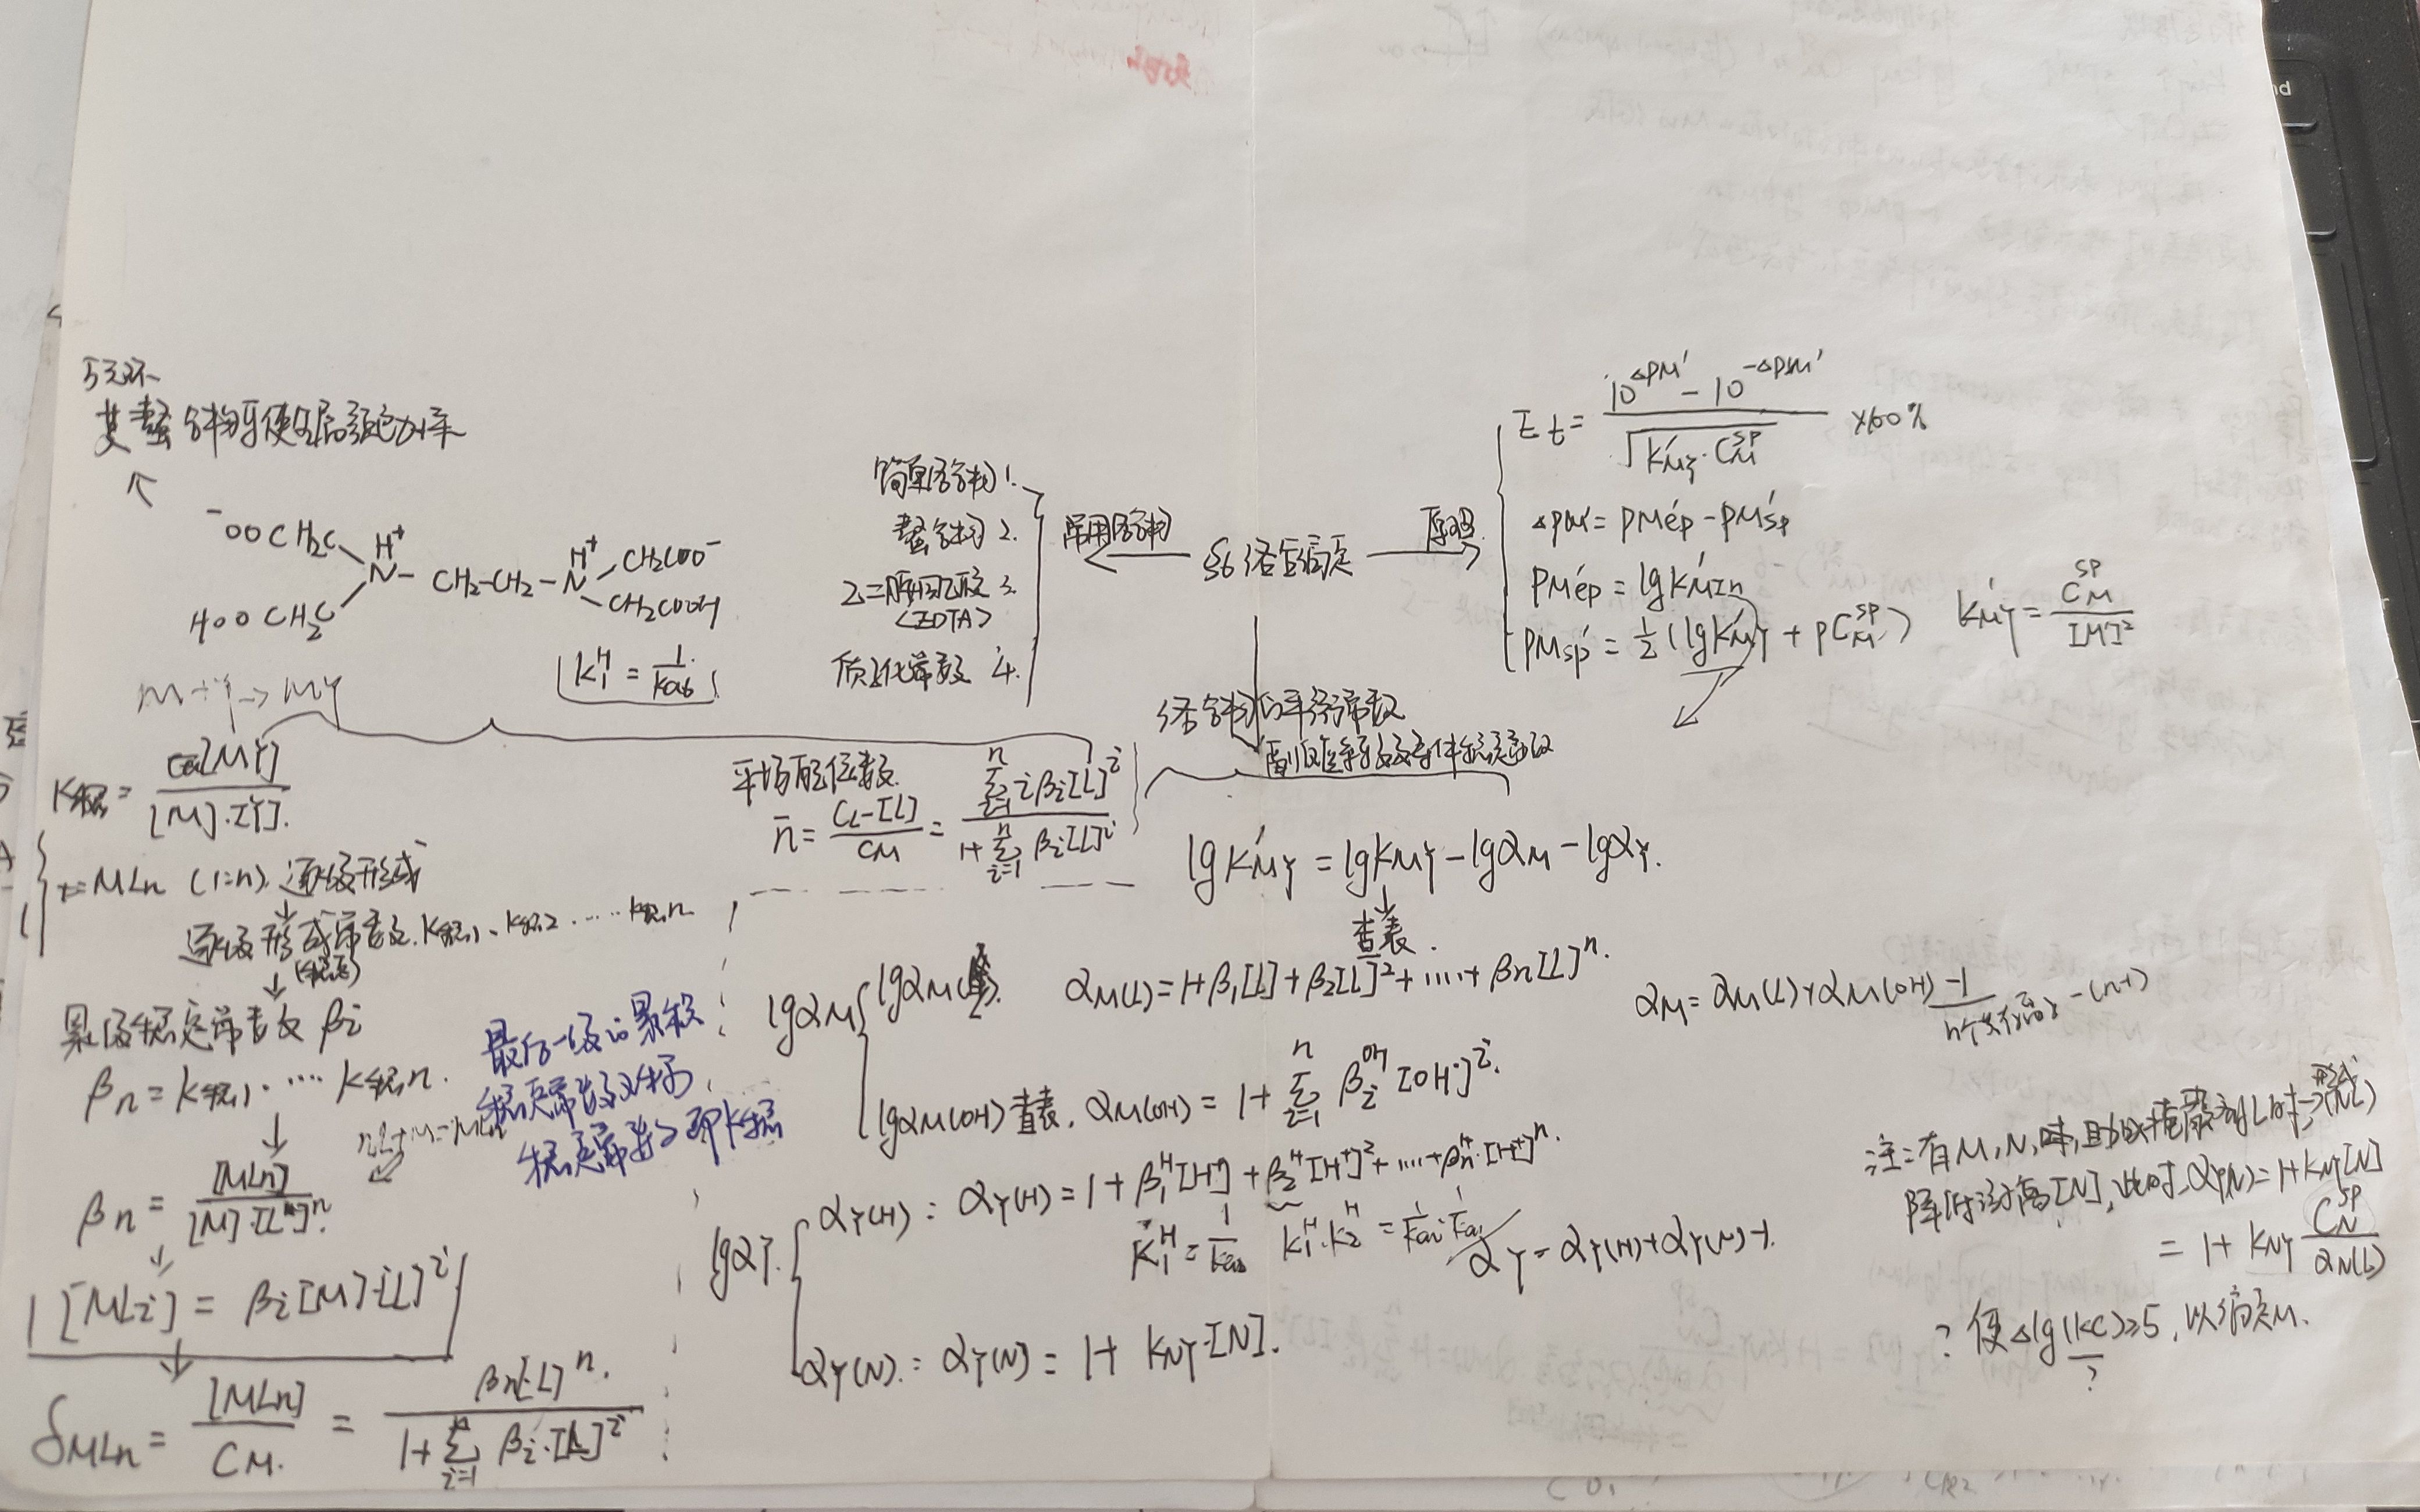 五元环
其螯合物可使金属
⁻OOCH₂C
H⁺
N - CH₂-CH₂ - N
H⁺
CH₂COO⁻
HOOCH₂C
CH₂COOH
K₁ᴴ = 1/Ka₆
M+Y→MY
简单络合物 1.
螯合物 2.
乙二胺四乙酸 3.
<EDTA>
质子化常数 4.
常用络合物
§6 络合滴定
原理
Et = (10^ΔpM' - 10^-ΔpM') / √(K'MY·C_M^SP) ×100%
ΔpM' = pM'ep - pM'sp
pM'ep = lgK'MIn
pM'sp = ½(lgK'MY + pC_M^SP)
K'MY = C_M^SP / [M']²
络合物的平衡常数
副反应系数及条件稳定常数
K稳 = [MY] / [M]·[Y].
MLn (1:n) 逐级形成
逐级形成常数. K稳1、K稳2 ······ K稳n
(K稳)
累积稳定常数 βi
βn = K稳1 ···· K稳n.
nL+M=MLn
βn = [MLn] / [M]·[L]ⁿ.
[MLi] = βi[M]·[L]ⁱ
δMLn = [MLn] / CM. = βn[L]ⁿ. / 1+Σ(i=1→n) βi·[L]ⁱ
平均配位数.
n̄ = (CL-[L]) / CM = Σ(i=1→n) iβi[L]ⁱ / 1+Σ(i=1→n) βi[L]ⁱ
最后一级的累积
稳定常数又称
稳定常数即K稳
lgK'MY = lgKMY - lgαM - lgαY.
查表.
lgαM
lgαM(L). αM(L) = 1+β₁[L]+β₂[L]²+····+βn[L]ⁿ.
lgαM(OH) 查表. αM(OH) = 1+Σ(i=1→n) βi^OH [OH⁻]ⁱ.
αM = αM(L)+αM(OH) -1
-(n-1)
lgαY.
αY(H): αY(H) = 1+β₁ᴴ[H⁺]+β₂ᴴ[H⁺]²+····+βnᴴ·[H⁺]ⁿ.
K₁ᴴ = 1/Ka₆ K₁ᴴ·K₂ᴴ = 1/Ka₆·1/Ka₅
αY = αY(H)+αY(N)-1.
αY(N): αY(N) = 1+ KNY·[N].
注:有M,N时,且加掩蔽剂L时→形成(NL)
降低游离[N],此时αY(N)=1+KNY[N]
= 1+ KNY C_N^SP / αN(L)
? 使Δlg(KC)≥5,以滴定M.
?